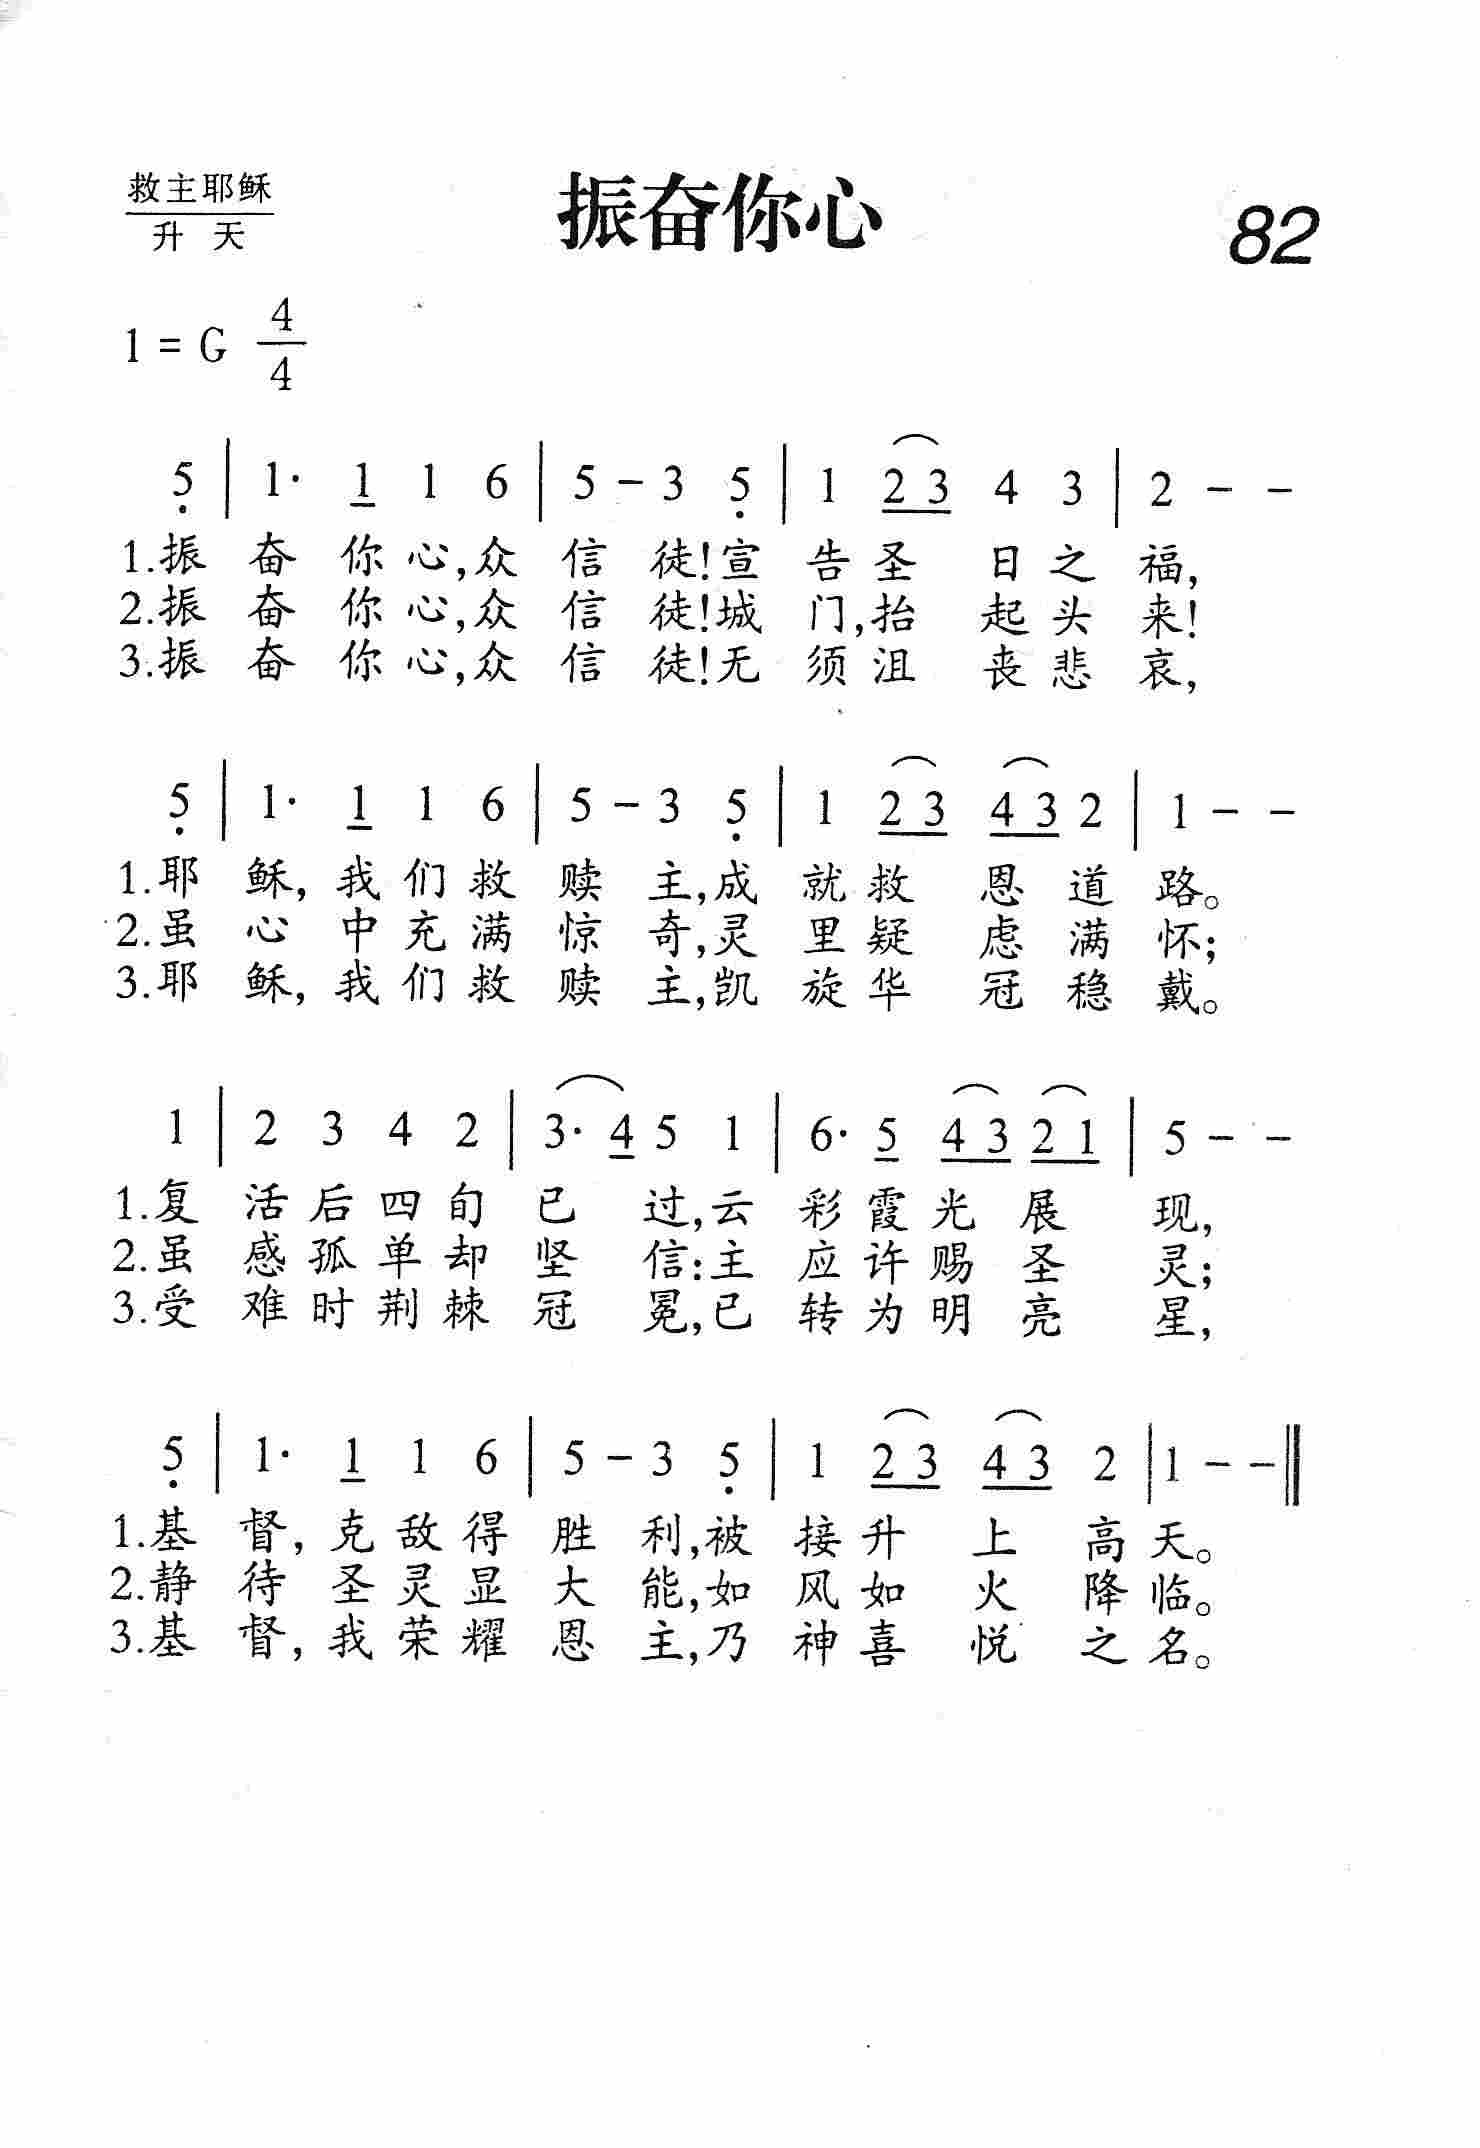 救主耶稣
升 天
振奋你心
82
1 = G 4/4
5̣ | 1· 1 1 6 | 5 - 3 5̣ | 1 2 3 4 3 | 2 - -
1.振奋你心,众信徒!宣告圣日之福,
2.振奋你心,众信徒!城门,抬起头来!
3.振奋你心,众信徒!无须沮丧悲哀,
5̣ | 1· 1 1 6 | 5 - 3 5̣ | 1 2 3 4 3 2 | 1 - -
1.耶稣,我们救赎主,成就救恩道路。
2.虽心中充满惊奇,灵里疑虑满怀;
3.耶稣,我们救赎主,凯旋华冠稳戴。
1 | 2 3 4 2 | 3· 4 5 1 | 6· 5 4 3 2 1 | 5 - -
1.复活后四旬已过,云彩霞光展现,
2.虽感孤单却坚信:主应许赐圣灵;
3.受难时荆棘冠冕,已转为明亮星,
5̣ | 1· 1 1 6 | 5 - 3 5̣ | 1 2 3 4 3 2 | 1 - - ‖
1.基督,克敌得胜利,被接升上高天。
2.静待圣灵显大能,如风如火降临。
3.基督,我荣耀恩主,乃神喜悦之名。